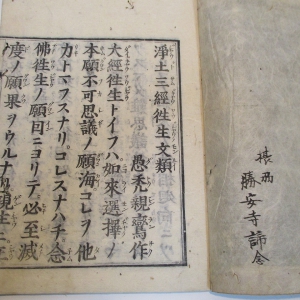 勝安寺 諦念
淨土三經徃生文類
愚禿親鸞作
大經徃生トイフハ如來選擇ノ
本願不可思議ノ願海コレヲ他
力トマフスナリコレスナハチ念
佛徃生ノ願因ニヨリテ必至滅
度ノ願果ヲウルナリ現生ニ正